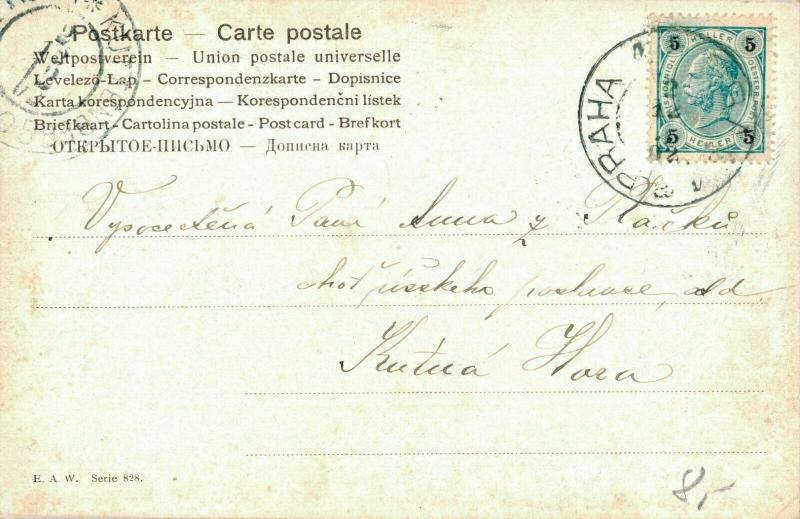 Postkarte — Carte postale
Weltpostverein — Union postale universelle
Levelező-Lap - Correspondenzkarte - Dopisnice
Karta korespondencyjna — Korespondenčni listek
Briefkaart - Cartolina postale - Post card - Brefkort
ОТКРЫТОЕ-ПИСЬМО — Дописна карта
5 HELLER 5
5 HELLER 5
PRAHA
Vysocectěná Paní Anna z Plačků
choť
Kutná Hora
E. A. W. Serie 828.
8,-